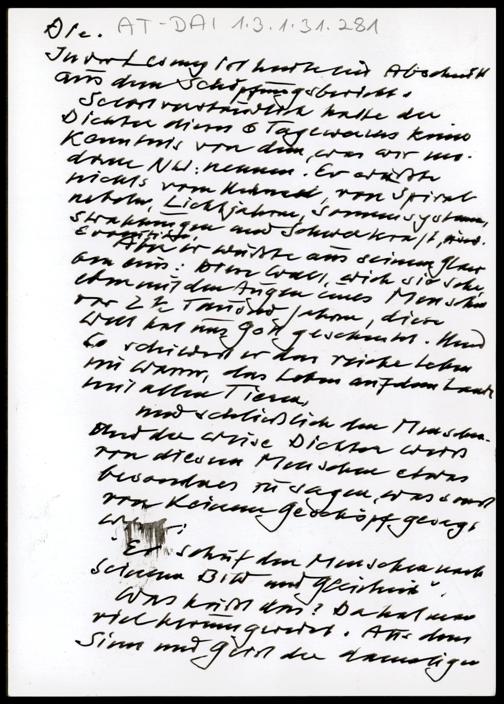 Die.
AT-DAI 1.3.1.31.281
In der Lesung ist heute ein Abschnitt
aus dem Schöpfungsbericht.
Selbstverständlich hatte der
Dichter dieses 6 Tagewerks keine
Kenntnis von dem, was wir mo-
derne NW. nennen. Er wußte
nichts vom, von Spiral
nebeln, Lichtjahren, Sonnensystemen,
Strahlungen und Schwerkraft, usw.
Aber er wußte aus seinem Glau
ben eins: Diese Welt, wie ich sie sehe,
eben mit den Augen eines Menschen
vor 2 ½ Tausend Jahren, diese
Welt hat uns Gott geschenkt. Und
so schildert er das reiche Leben
im Wasser, das Leben auf dem Lande
mit allen Tieren,
und schließlich den Menschen.
Und der weise Dichter weiß
von diesem Menschen etwas
besonderes zu sagen, was sonst
von keinem Geschöpf gesagt
wird:
"Er schuf den Menschen nach
seinem Bild und Gleichnis".
Was heißt das? Da hat man
viel herumgeredet. Aus dem
Sinn und Geist der damaligen